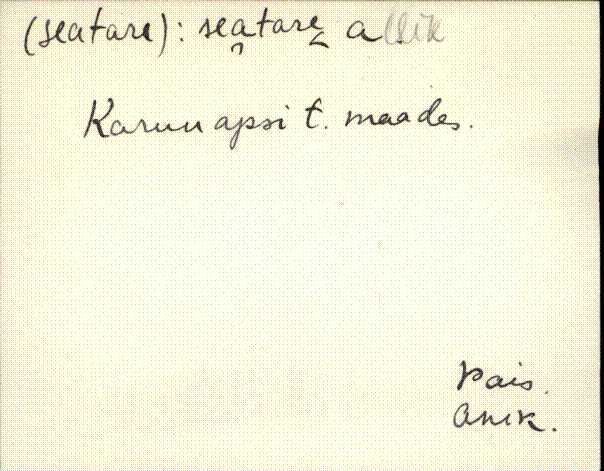 (seatare): seatare allik
Karuu apsi t. maades.
Pais.
Anik.